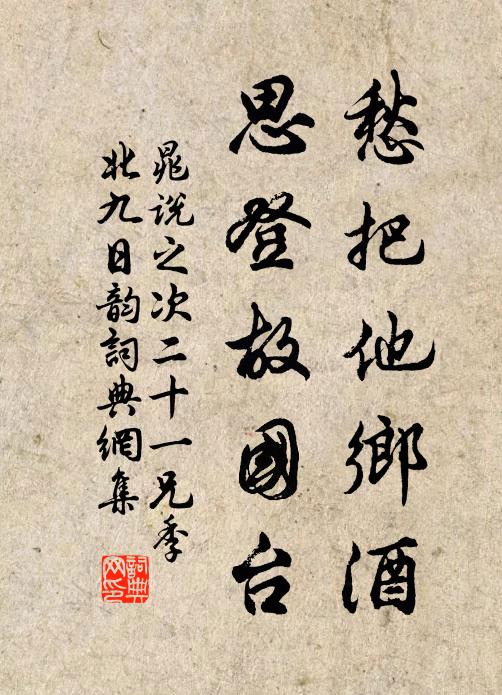 愁把他鄉酒
思登故國台
晁說之次二十一兄季
此九日韵詞典網集
詞典
网印